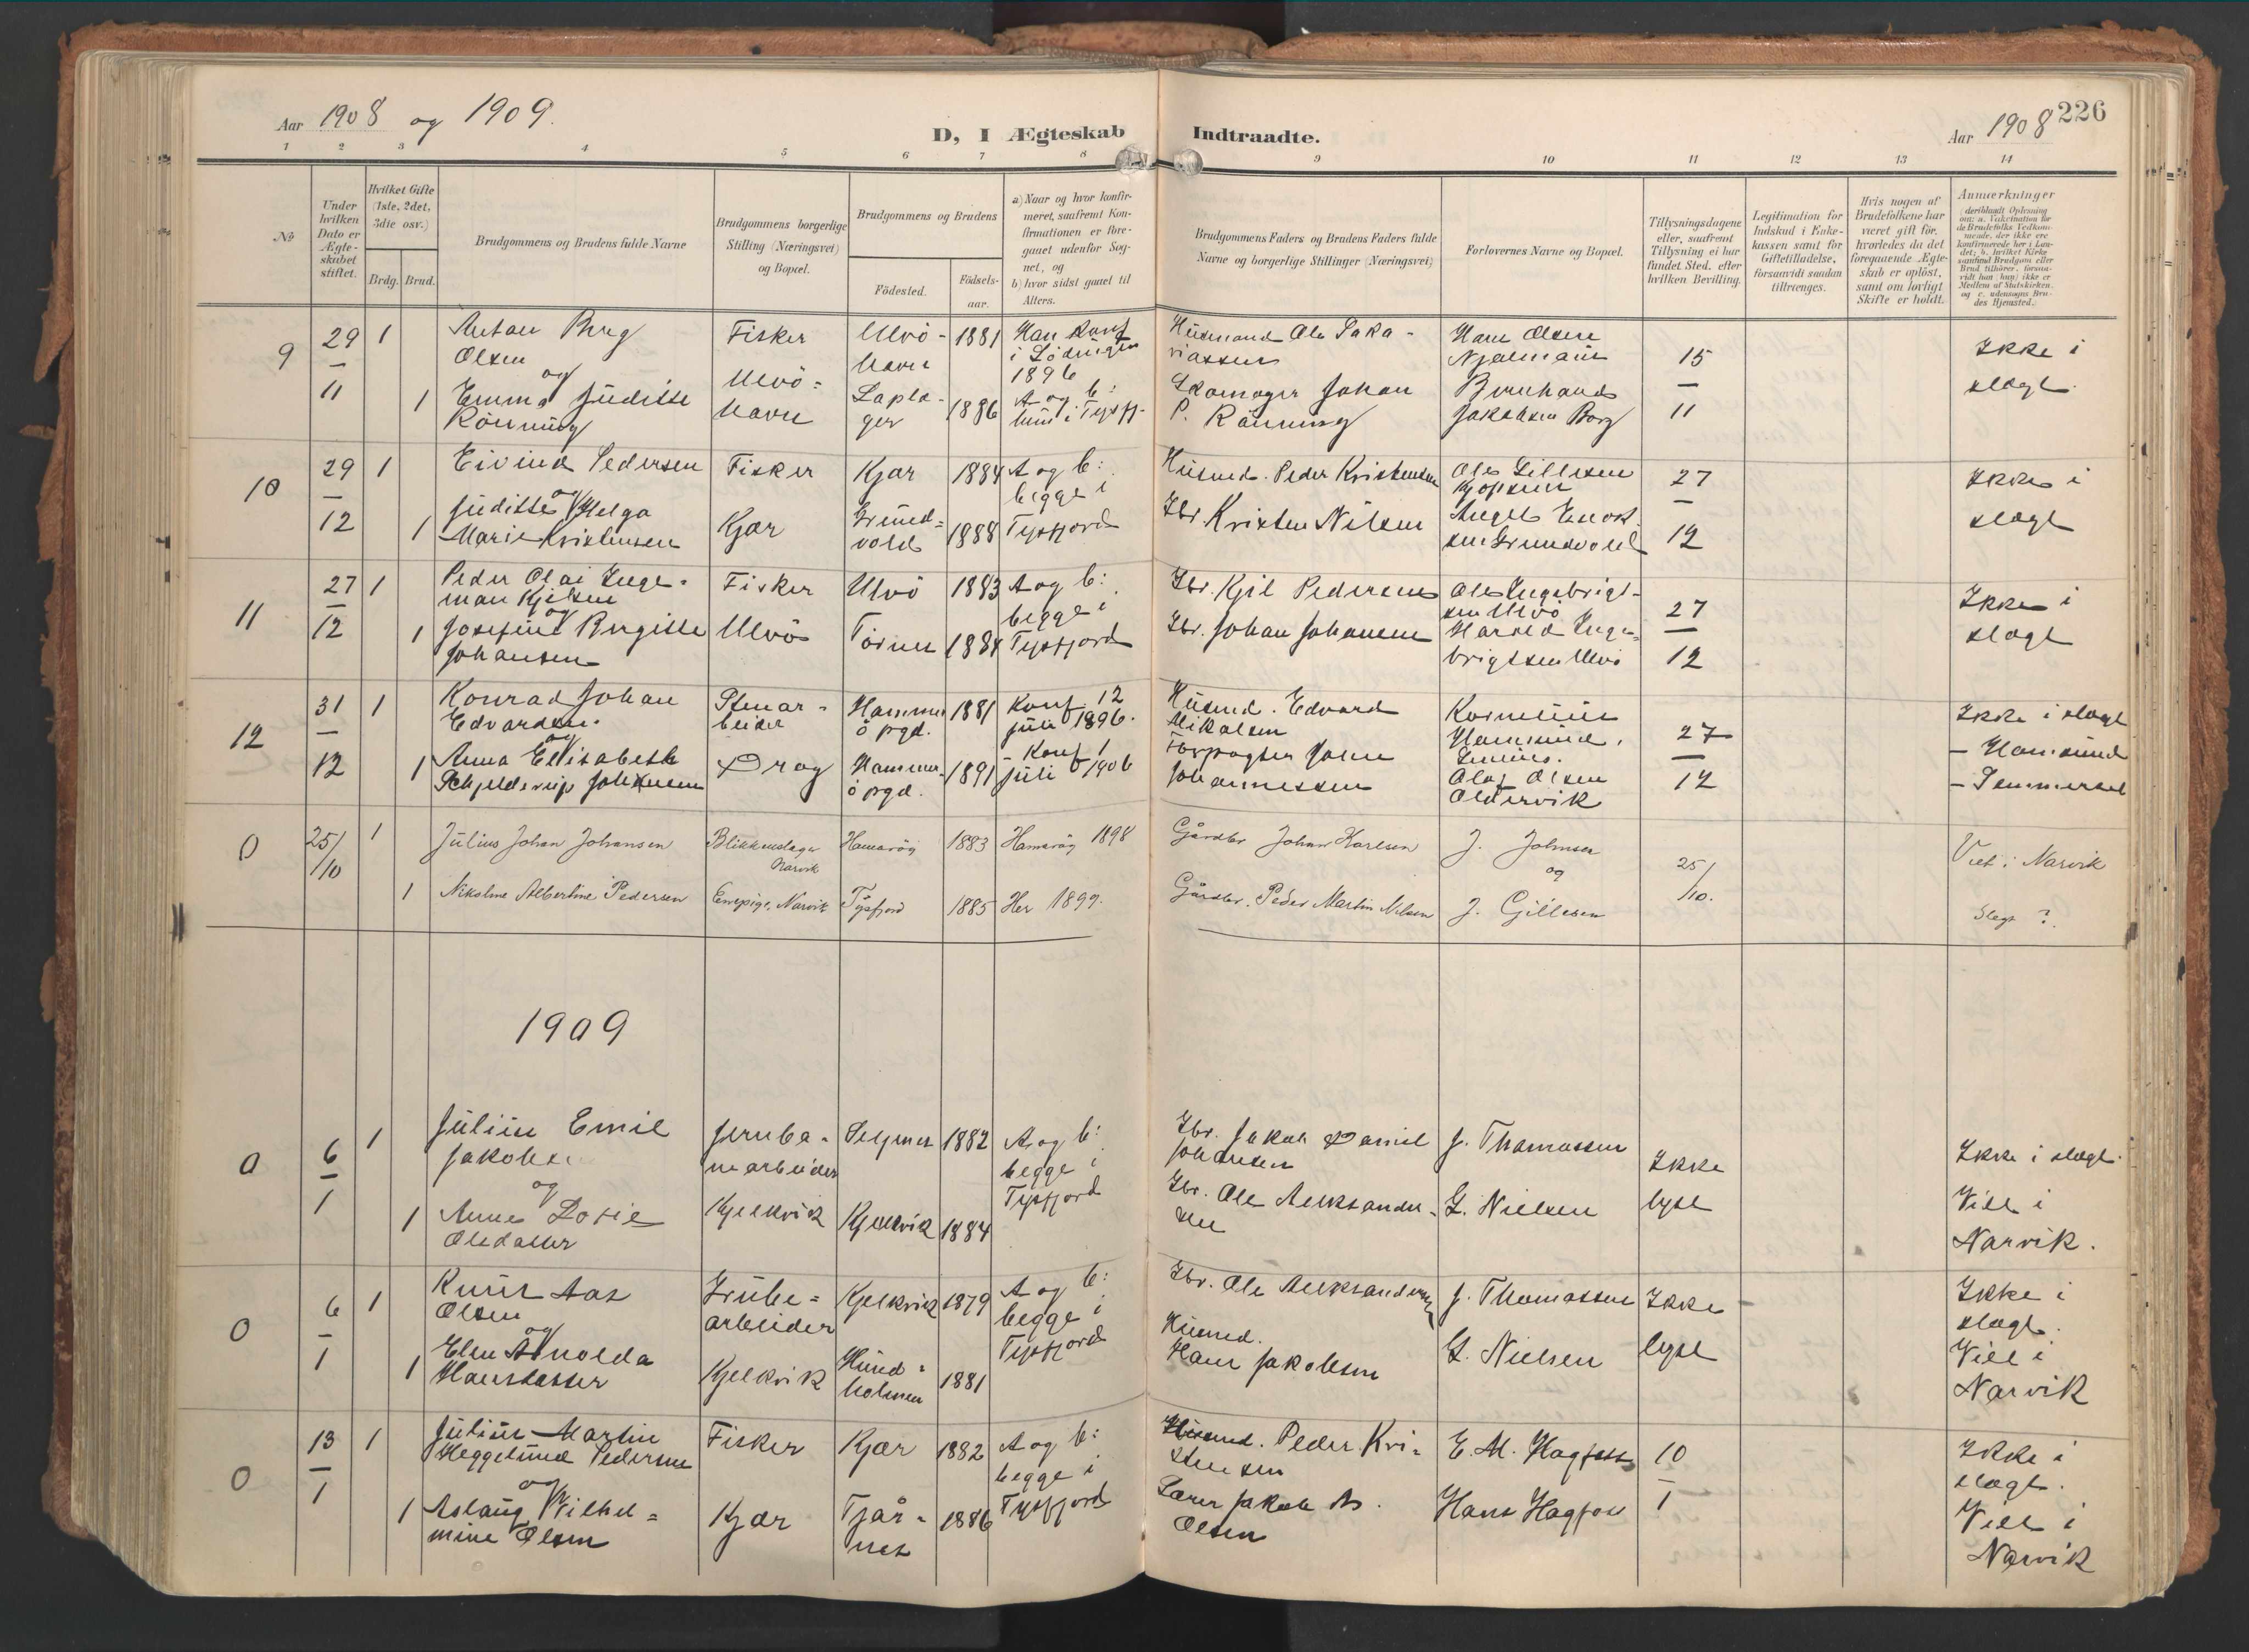 Aar 1908 og 1909.
D, I Ægteskab Indtraadte.
Aar 1908
226
1 2 3 4 5 6 7 8 9 10 11 12 13 14
№
Under hvilken Dato er Ægteskabet stiftet.
Hvilket Gifte (1ste, 2det, 3die osv.)
Brdg. Brud.
Brudgommens og Brudens fulde Navne
Brudgommens borgerlige Stilling (Næringsvei) og Bopæl.
Brudgommens og Brudens
Fødested.
Fødselsaar.
a) Naar og hvor konfirmeret, saafremt Konfirmationen er foregaaet udenfor Sognet, og
b) hvor sidst gaaet til Alters.
Brudgommens Faders og Brudens Faders fulde Navne og borgerlige Stillinger (Næringsvei)
Forlovernes Navne og Bopæl.
Tillysningsdagene eller, saafremt Tillysning ei har fundet Sted, efter hvilken Bevilling.
Legitimation for Indskud i Enkekassen samt for Giftetilladelse, forsaavidt saadan tiltrænges.
Hvis nogen af Brudefolkene har været gift før, hvorledes da det foregaaende Ægteskab er opløst, samt om lovligt Skifte er holdt.
Anmærkninger
9
29/11
1
Anton Berg
Olsen
og
1
Emma Juditte
Rönning
Fisker
Ulvö-
havn
Ulvö-
havn
1881
1886
Han konf
i Lödingen
1896
A og b:
hun i Tysfj.
Husmand Ole Saka-
riassen
Skomager Johan
P. Rönning
Hans Olsen
Bernhard
Jakobsen Borg
15/11
Ikke i
slægt.
10
29/12
1
Eivind Pedersen
og
1
Juditte Helga
Marie Kristensen
Fisker
Kjær
Kjær
Grund-
vold
1884
1888
A og b:
begge i
Tysfjord
Husmd. Peder Kristensen
Gbr. Kristen Nilsen
Ole Gillesen
Angel Enok-
sen Grundvold
27/12
Ikke i
slægt
11
27/12
1
Peder Olai Inge-
man Kjelsen
og
1
Josefine Birgitte
Johansen
Fisker
Ulvö
Ulvö
1883
1884
A og b:
begge i
Tysfjord
Gbr. Kjel Pedersen
Gbr. Johan Johansen
Ole Ingebrigt-
sen Ulvö
Harald Inge-
brigtsen Ulvö
27/12
Ikke i
slægt
12
31/12
1
Konrad Johan
Edvardsen.
og
1
Anna Elisabeth
Schjelderup Johansen
Stenar-
beider
Drag
Hammer-
ö prgd.
Hammer-
ö prgd.
1881
1891
Konf 12
juli 1896.
- Konf 1
juli 1906
Husmd. Edvard
Mikalsen
Forpagter John
Johannessen
Kornelius
Hamsund.
Olaf Olsen
Oldervik
27/12
Ikke i slægt
- Hamsund
0
25/10
1
Julius Johan Johansen
1
Nikoline Albertine Pedersen
Blikkenslager
Narvik
Enepige, Narvik
Hamarøy
Tysfjord
1883
1885
Hamarøy 1898
Her 1899.
Gårdbr. Johan Karlsen
Gårdbr. Peder Martin Nilsen
J. Johnsen
og
J. Gillesen
25/10.
Viet i Narvik
Slegt ?
1909
0
6/1
1
Julius Emil
Jakobse
og
1
Anne Dorie
Olsdatter
Jernba-
nearbeider
Kjelkvik
Kjelkvik
1882
1884
A og b:
begge i
Tysfjord
Gbr. Jakob Daniel
Johansen
Gbr. Ole Aleksander-
sen
J. Thomassen
G. Nielsen
Ikke
lyst
Ikke i slægt.
Viet i
Narvik.
0
6/1
1
Knut Aas
Olsen
og
1
Elen Arnolda
Hansdatter
Grube-
arbeider
Kjelkvik
Kjelkvik
Hund-
holmen
1879
1881
A og b:
begge i
Tysfjord
Gbr. Ole Aleksandersen
Husmd.
Hans Jakobsen
J. Thomassen
G. Nielsen
Ikke
lyst
Ikke i
slægt.
Viet i
Narvik
0
13/1
1
Julius Martin
Heggelund Pedersen
og
1
Aslaug Vilhel-
mine Olsen
Fisker
Kjær
Kjær
Tjår-
nes
1882
1886
A og b:
begge i
Tysfjord
Husmd. Peder Kri-
stensen
Lærer Jakob As.
Olsen
E. M. Hagfoss
Hans Hagfos
10/1
Ikke i
slægt.
Viet i
Narvik